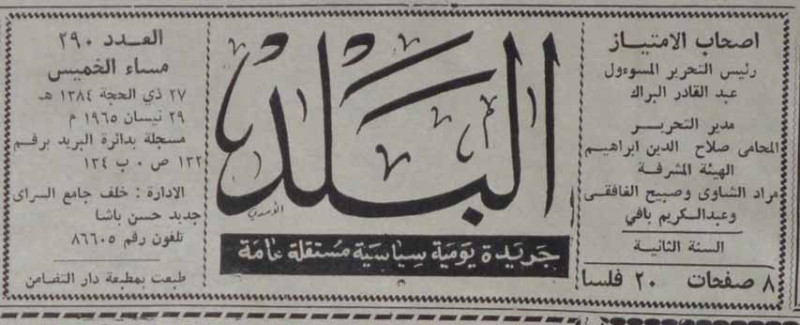 اصحاب الامتياز
رئيس التحرير المسوءول
عبد القادر البراك
مدير التحريـر
المحامى صلاح الدين ابراهيم
الهيئة المشرفة
مراد الشاوى وصبيح الغافقى
وعبدالكريم بافي
السنة الثانية
٨ صفحات ٢٠ فلسا
البلد
الأسدي
جريدة يومية سياسية مستقلة عامة
العـدد ٢٩٠
مساء الخميس
٢٧ ذي الحجة ١٣٨٤ هـ
٢٩ نيسان ١٩٦٥ م
مسجلة بدائرة البريد برقم
١٣٢ ص ٠ ب ١٣٤
الادارة : خلف جامع السراى
جديد حسن باشا
تلفون رقم ٨٦٦٠٥
طبعت بمطبعة دار التضامن